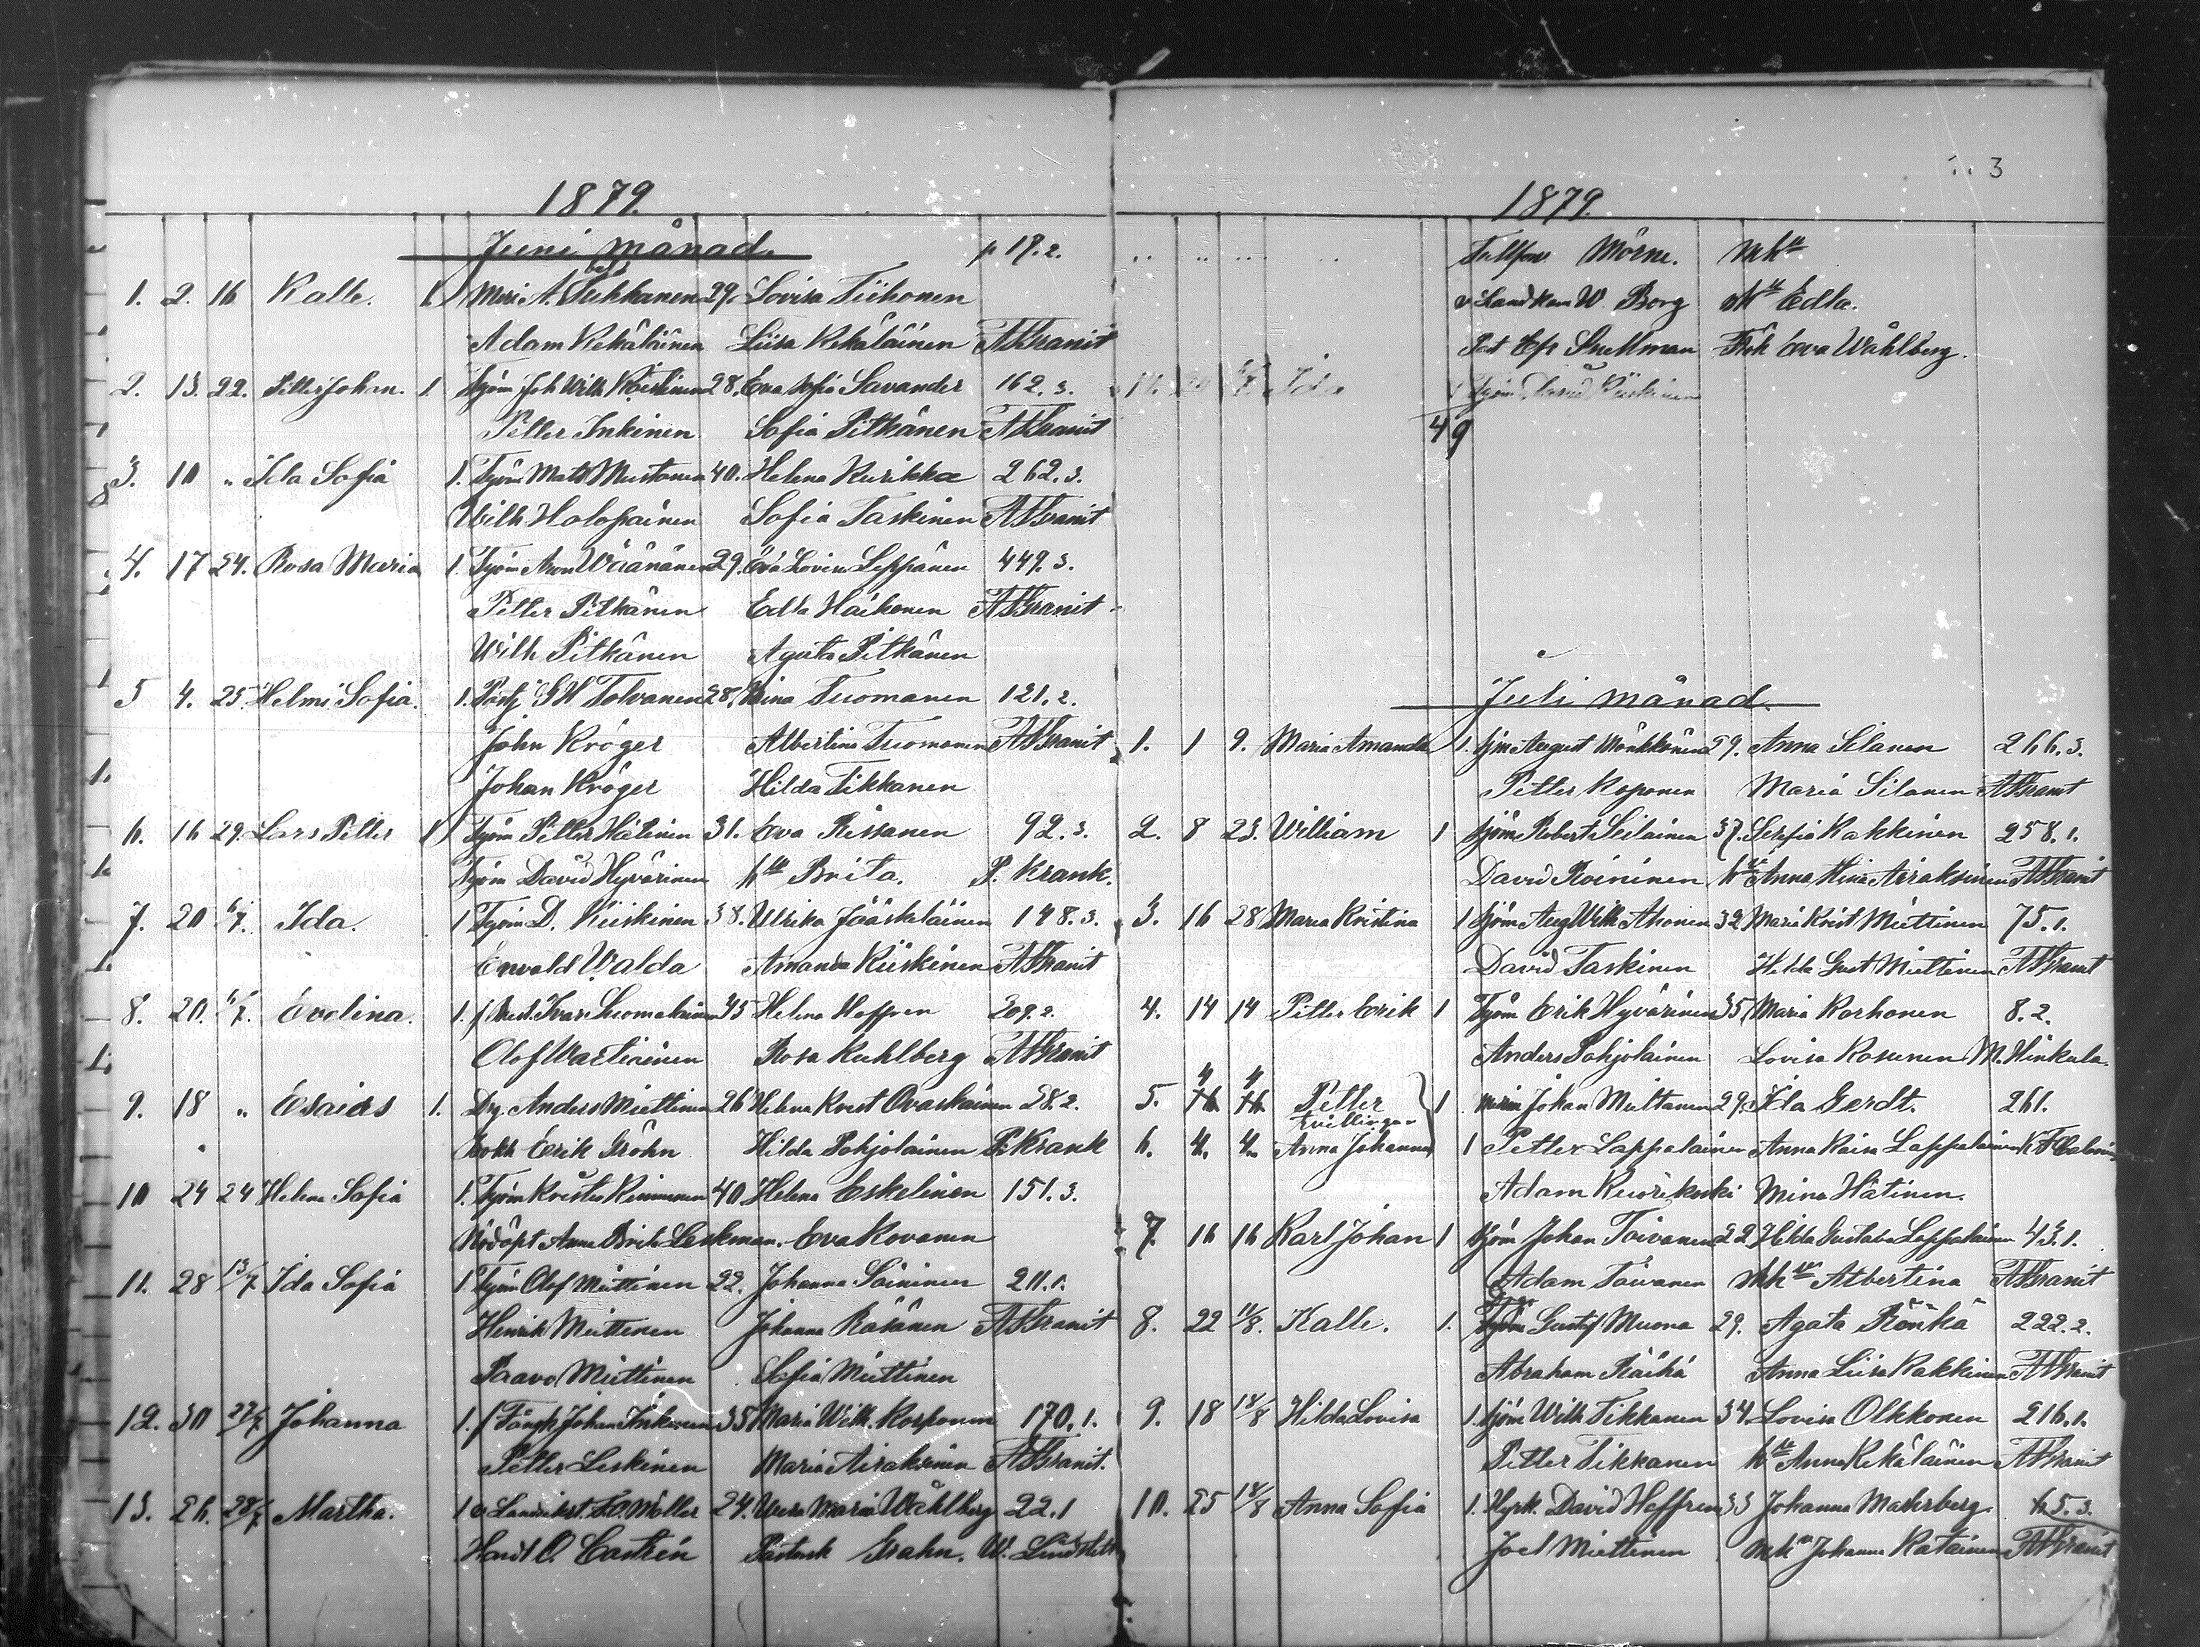 1879.
Juni månad. p 17.2.
1. 2. 16 Kalle. 1 A. Tukkanen 29. Lovisa Tiihonen
Adam Kekäläinen Liisa Kekäläinen A Granit
2. 13. 22. Petter Johan. 1. Tjöm Joh Wilh 28. Eva Sofia Savander 162.3.
Petter Inkinen Sofia Pitkänen A Granit
3. 10 " Ida Sofia 1. Tjöm Mats Mustonen 40. Helena Kurikka 262.3.
Wilh Holopainen Sofia Taskinen A Granit
4. 17 24. Rosa Maria 1. Tjöm Aron Wäänänen 29. Eva Lovisa Leppänen 449.3.
Petter Pitkänen Edla Haikonen A Granit
Wilh Pitkänen Agata Pitkänen
5 4. 25. Helmi Sofia. 1. G W Tolvanen 28. Tuomanen 121.2.
John Kröger Albertina Tuomanen A Granit
Johan Kröger Hilda Tikkanen
6. 16 29. Lars Petter 1 Tjöm Petter Hätinen 31. Eva Rissanen 92.3.
Tjöm David Hyvärinen Brita. P. Krank.
7. 20 6/7. Ida. 1 Tjöm D. Kiiskinen 38. Ulrika Jääskeläinen 148.3.
Envald Walda Amanda Kiiskinen A Granit
8. 20. 6/7. Evelina. 1. Ivar Suomalainen 35 Helena Hoffren 209.2.
Olof Wartiainen Rosa Kuhlberg A Granit
9. 18 " Esaias 1. Dr. Anders Miettinen 26 Helena Krist Ovaskainen 28.2.
Bokh Erik Gröhn Hilda Pohjolainen P. Krank
10 24 24 Helena Sofia 1. Tjöm Krister Kinnunen 40. Helena Eskelinen 151.3.
Nödöpt Anna Brita Leskman. Eva Kovanen
11. 28 13/7 Ida Sofia 1 Tjöm Olof Miettinen 22. Johanna Soininen 211.1.
Henrik Miettinen Johanna Räsänen A Granit
Paavo Miettinen Sofia Miettinen
12. 30 27/7 Johanna 1. Johan Inkinen 35 Maria Wilh. Korhonen 170.1.
Petter Leskinen Maria Airaksinen A Granit.
13. 26. 28/7 Martha. 1 Möller 24. Maria Wåhlberg 22.1
O. Castrén Grahn. W.
3
1879.
Mörne. mhu
v Landkam W. Borg Edla.
Snellman Frk Eva Wåhlberg.
11. 20 6/7. Ida 1 Tjöm David Kiiskinen
4 9
Juli månad.
1. 1 9. Maria Amanda 1. Tjöm August Mönkkönen 29. Anna Silanen 266.3.
Petter Koponen Maria Silanen A Granit
2. 8 23. William 1 Tjöm Robert Seilainen 37. Kakkinen 258.1.
David Roininen Anna Airaksinen A Granit
3. 16 28 Maria Kristina 1 Tjöm Aug Wilh Ahonen 32 Maria Krist Miettinen 75.1.
David Taskinen Hilda Gust Miettinen A Granit
4. 14 14 Petter Erik 1 Tjöm Erik Hyvärinen 35. Maria Korhonen 8.2.
Anders Pohjolainen Lovisa Kosunen M. Hinkula
5. 4 4 Petter 1 Johan Multanen 29. Ida Gerdt. 261.
tvillingar
6. 4. 4. Anna Johanna 1 Petter Lappalainen Anna Kaisa Lappalainen
Adam Kuorikoski Mina Hätinen.
7. 16 16 Karl Johan 1 Tjöm Johan Toivanen 22 Hilda Gustava Lappalainen 43.1.
Adam Toivanen Albertina A Granit
8. 22 11/8. Kalle. 1. Gustaf Muona 29. Agata Rönkä 222.2.
Abraham Räihä Anna Liisa Kakkinen A Granit
9. 18 18/8 Hilda Lovisa 1. Tjöm Wilh Tikkanen 34. Lovisa Olkkonen 216.1.
Petter Tikkanen Anna Kekäläinen A Granit
10. 25 18/8 Anna Sofia 1. Hyrk. David Hoffren 33 Johanna Markberg. 65.3.
Joel Miettinen Johanna Katainen A Granit